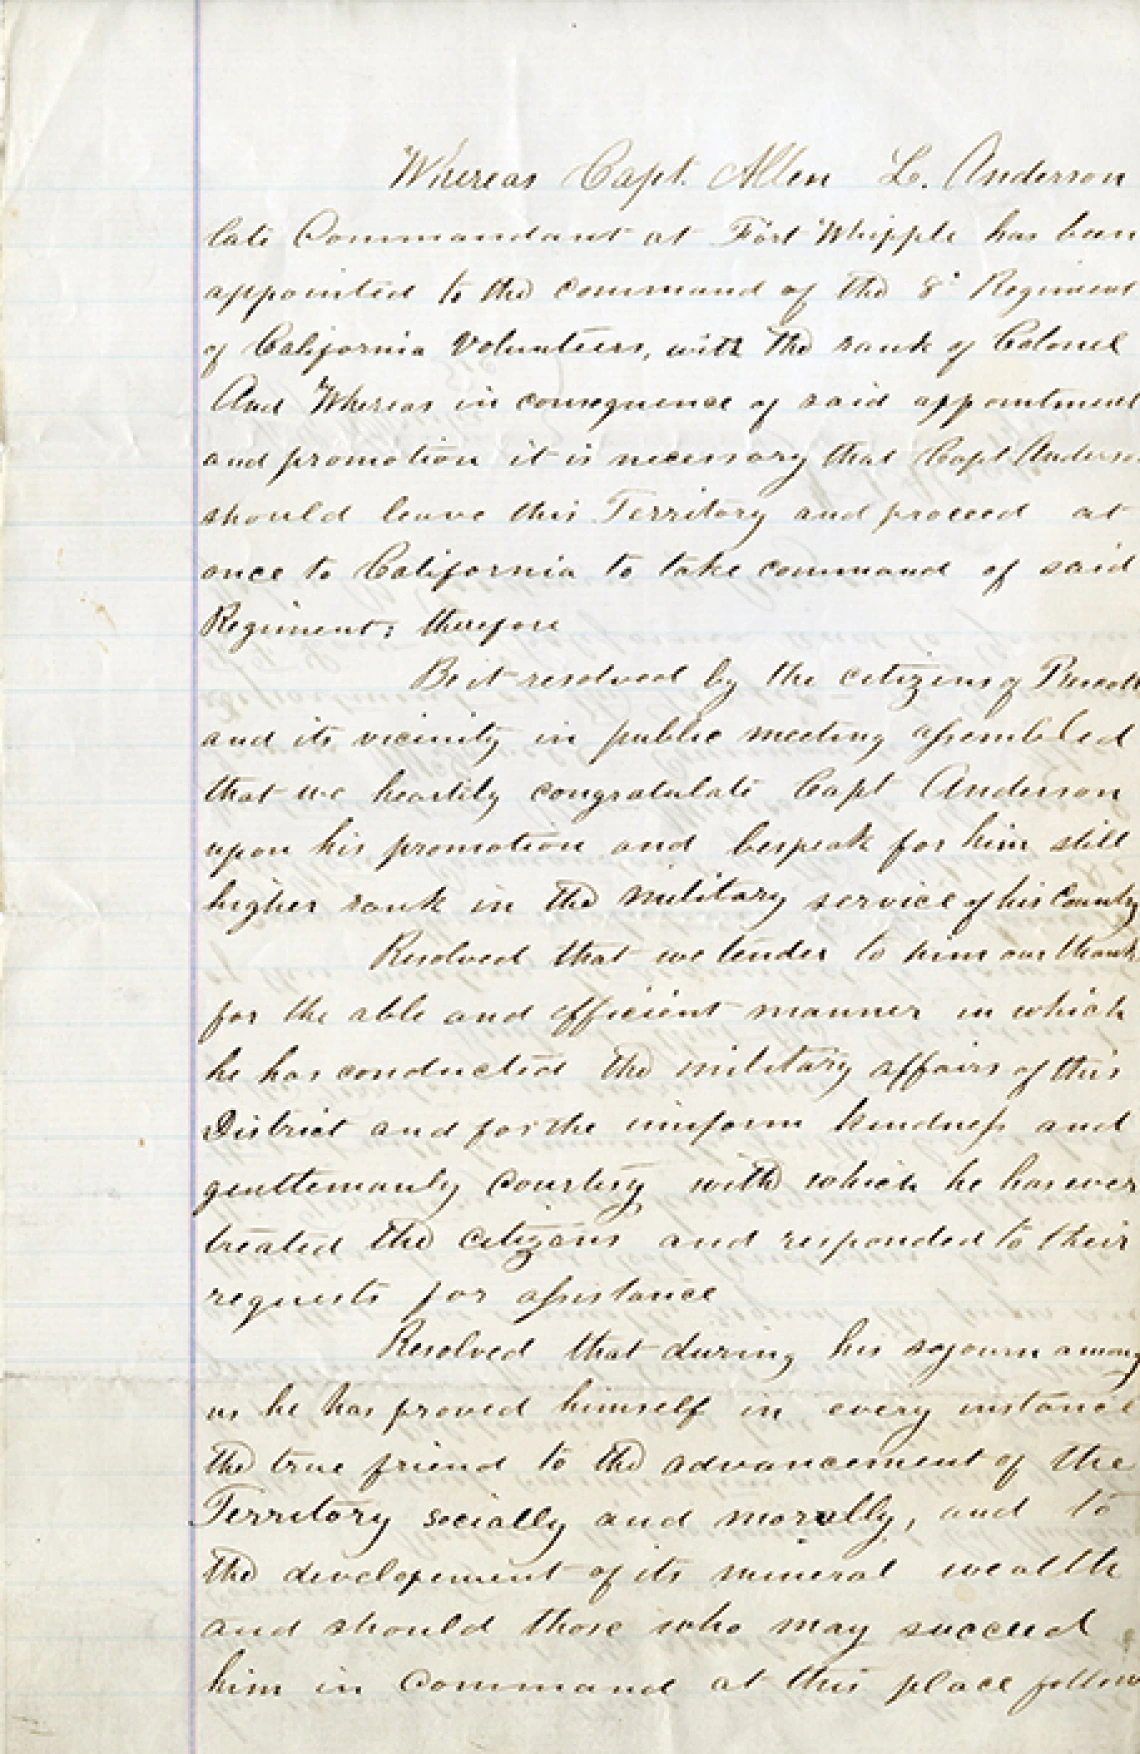 Whereas Capt. Allen L. Anderson
late Commandant at Fort Whipple has been
appointed to the command of the 8" Regiment
of California Volunteers, with the rank of Colonel
And Whereas in consequence of said appointment
and promotion it is necessary that Capt Anderson
should leave this Territory and proceed at
once to California to take command of said
Regiment; therefore
Be it resolved by the citizens of Prescott
and its vicinity in public meeting assembled
that we heartily congratulate Capt Anderson
upon his promotion and bespeak for him still
higher rank in the military service of his Country
Resolved that we tender to him our thanks
for the able and efficient manner in which
he has conducted the military affairs of this
District and for the uniform kindness and
genttemanly courtesy with which he has ever
treated the citizens and responded to their
requests for assistance
Resolved that during his sojourn among
us he has proved himself in every instance
the true friend to the advancement of the
Territory socially and morally, and to
the developement of its mineral wealth
and should those who may succeed
him in command at this place follow